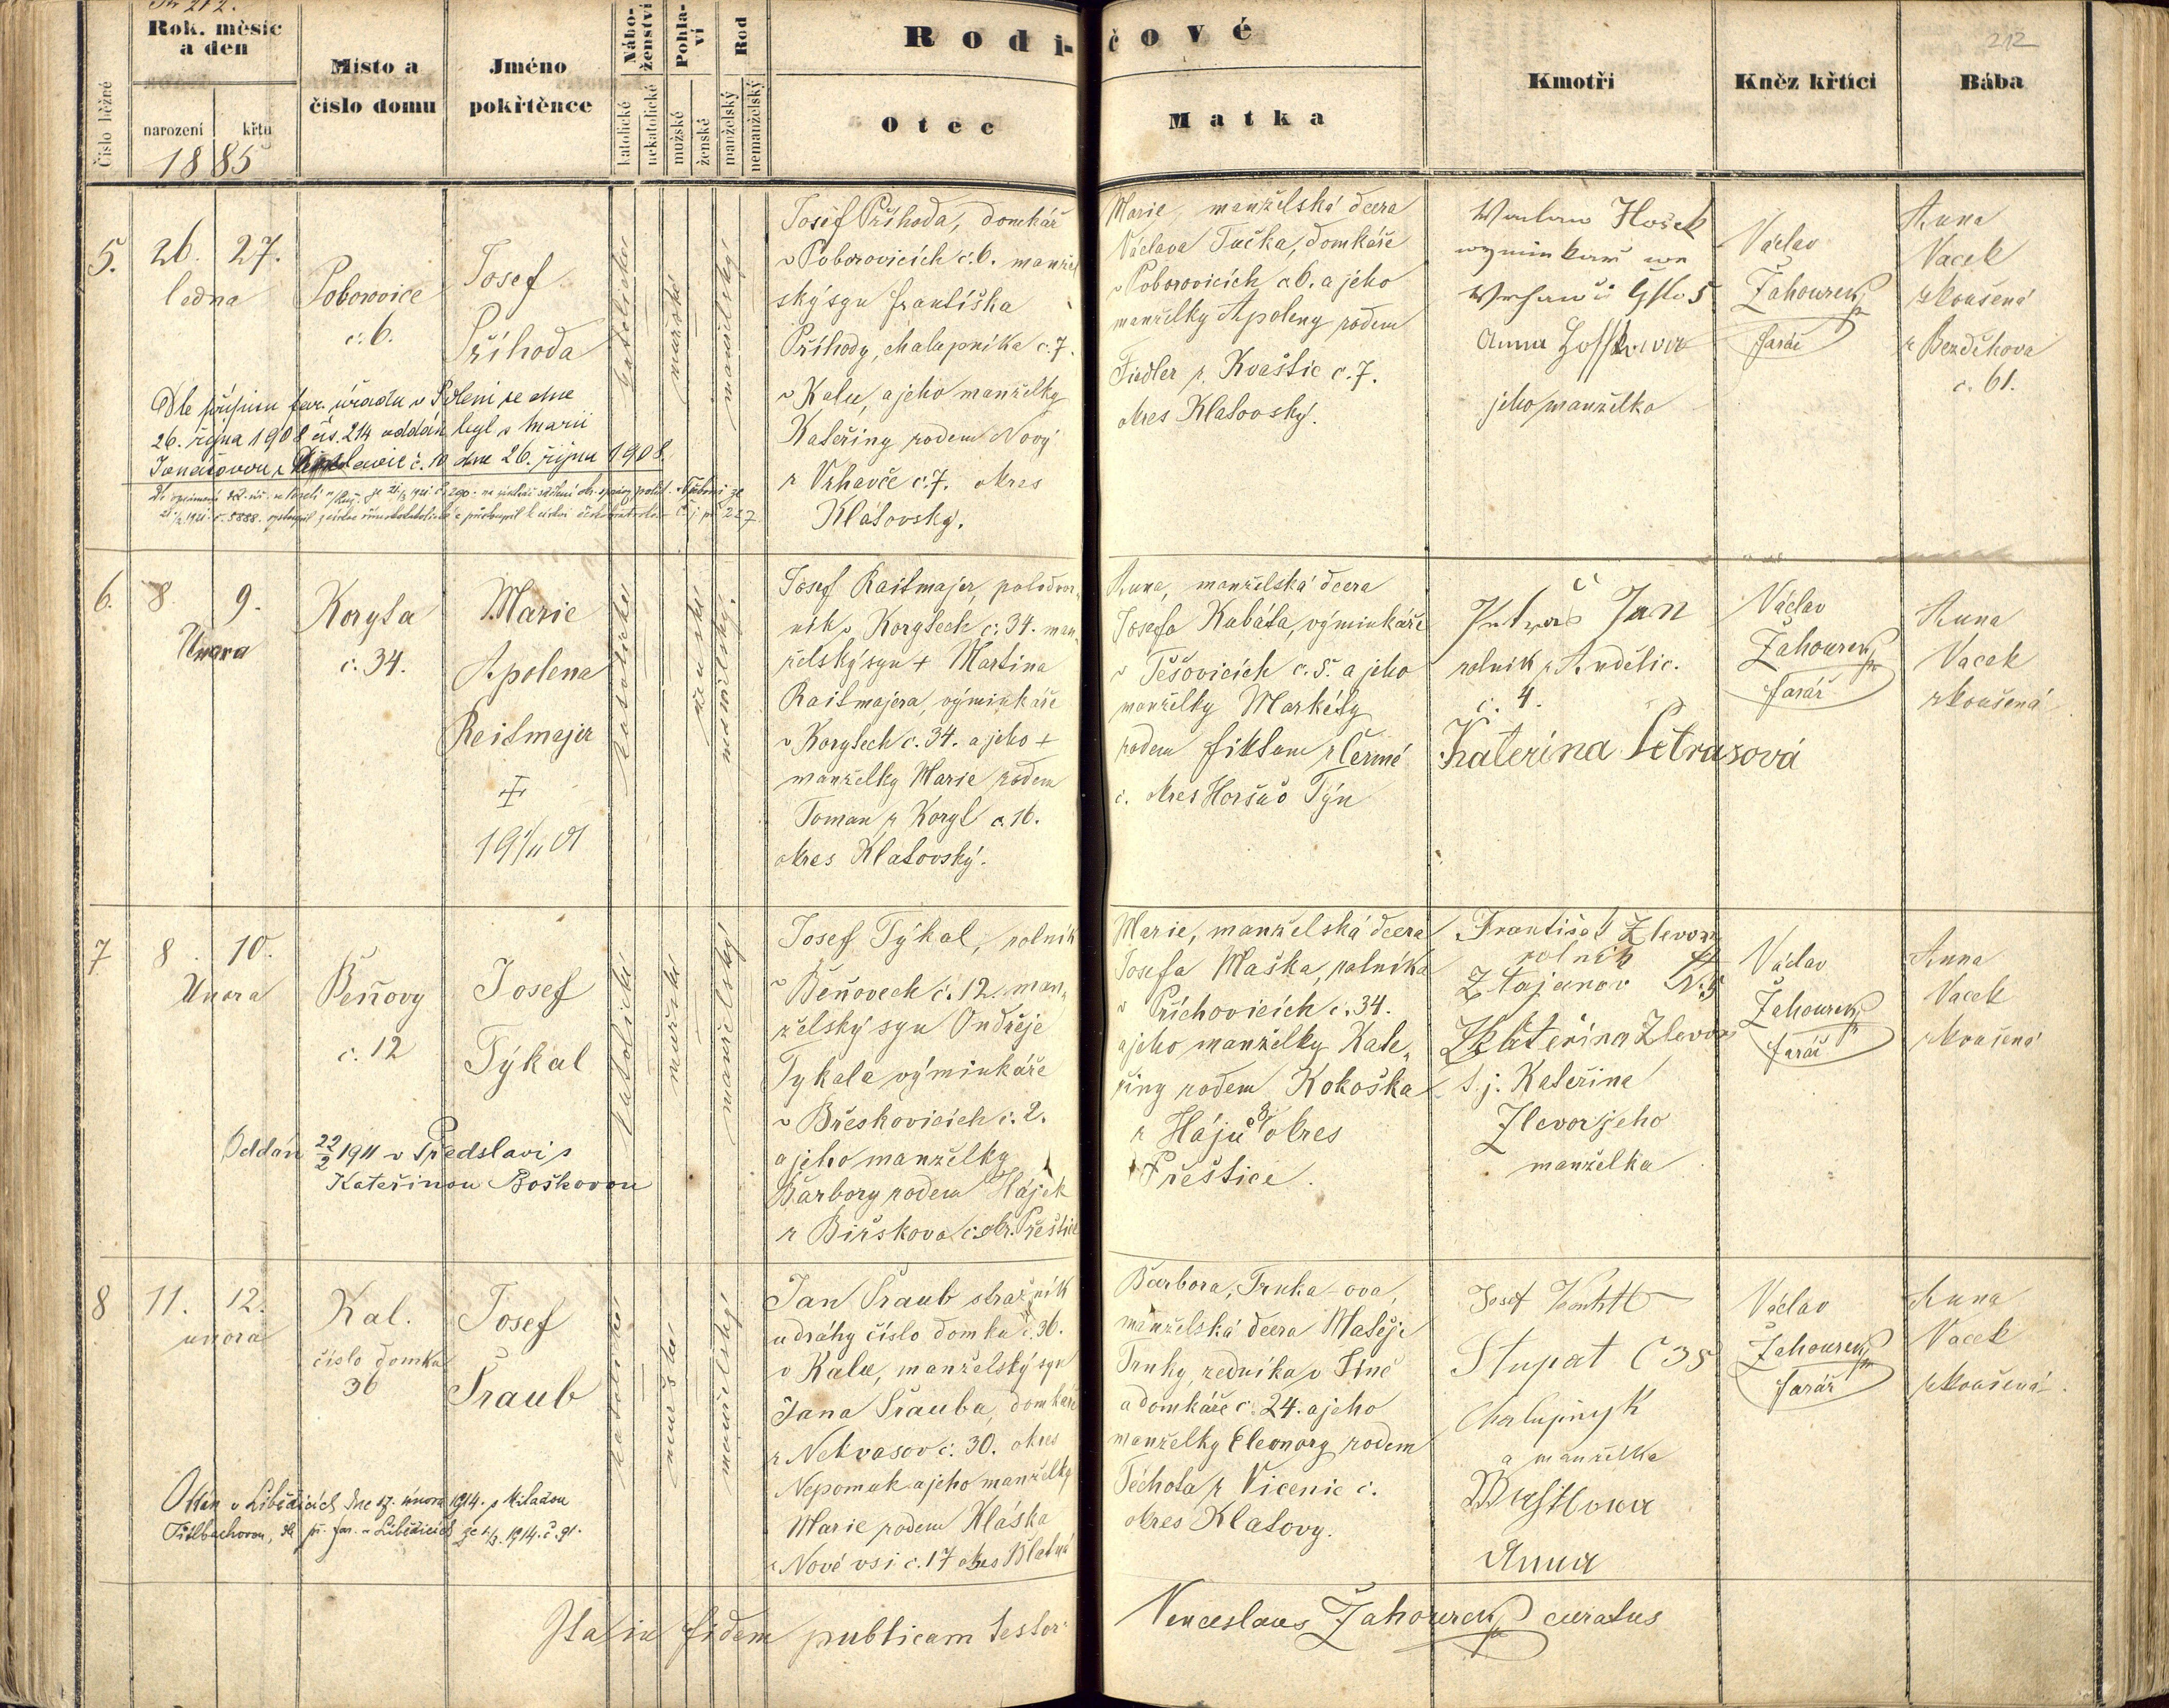 212.
Rok. měsíc
a den
narození
křtu
1885
Číslo běžné
Místo a
číslo domu
Jméno
pokřtěnce
Nábo-
ženství
katolické
nekatolické
Pohla-
ví
mužské
ženské
Rod
manželský
nemanželský
Rodi-
čové
Otec
Matka
Kmotři
Kněz křtící
Bába
212
5.
26. 27.
ledna
Poborovice
č. 6.
Josef
Příhoda
katolické
mužské
manželský
Josef Příhoda, domkář
v Poborovicích č. 6. manžel
ský syn Františka
Příhody, chalupníka č. 7.
v Kalu, a jeho manželky
Kateřiny rodem Nový
z Vrhavče č. 7. okres
Klatovský.
Marie, manželská dcera
Václava Tučka, domkáře
v Poborovicích č. 6. a jeho
manželky Apoleny rodem
Fiedler z Kvaštic č. 7.
okres Klatovský.
Waclaw Hošek
Anna
jeho manželka
Václav
Žahourek
farář
Anna
Vacek
zkoušená
z Bezděkova
č. 61.
Dle přípisu far. úřadu v Poleni ze dne
26. října 1908 čís. 214 oddán byl s Marií
č. 10 dne 26. října 1908.
6.
8. 9.
Února
Koryta
č. 34.
Marie
Apolena
Reitmajer
19 01
katolické
ženské
manželský.
Josef Raitmajer, polodvor-
ník v Korytech č. 34. man-
želský syn + Martina
Raitmajera, výminkáře
v Korytech č. 34. a jeho +
manželky Marie rodem
Toman z Koryt č. 16.
okres Klatovský.
Anna, manželská dcera
Josefa Kubáta, výminkáře
v Těšovicích č. 5. a jeho
manželky Markéty
rodem z Čermé
č. okres Horšův Týn
Jan
rolník z Andělic.
č. 4.
Katerina Petrasová
Václav
Žahourek
farář
Anna
Vacek
zkoušená
7
8. 10.
Února
Beňovy
č. 12
Josef
Týkal
katolické
mužské
manželský
Josef Týkal, rolník
v Beňovech č. 12. man-
želský syn Ondřeje
Tykala výminkáře
v Břeskovicích č. 2.
a jeho manželky
Barbory rodem Hájek
z Biřskova č. okr. Přeštice
Marie, manželská dcera
Josefa Maška, rolníka
v Příchovicích č. 34.
a jeho manželky Kate-
řiny rodem Kokoška
z Hájů okres
Přeštice.
František Zlevor
rolník
Z Tajanov N. 5
Kateřina Zlevor
t. j. Kateřina
Zlevor jeho
manželka
Václav
Žahourek
farář
Anna
Vacek
zkoušená
Oddán 22/2 1911 v Předslavi s
Kateřinou Boškovou
8
11. 12.
února
Kal.
číslo domku
36
Josef
Šraub
katolické
mužské
manželský
Jan Šraub stražník
u dráhy číslo domku č. 36.
v Kalu, manželský syn
Jana Šrauba, domkáře
z Nekvasov č. 30. okres
Nepomuk a jeho manželky
Marie rodem Hláska
z Nové vsi č. 17 okres Blatná
Barbora, Trnka-ova,
manželská dcera Matěje
Trnky, zedníka v
a domkáře č. 24. a jeho
manželky Eleonory rodem
Těchota z Vicenic č.
okres Klatovy.
Josef
Stupat Č 35
Chalupnyk
a manželka
Anna
Václav
Žahourek
farář
Anna
Vacek
zkoušená.
Oddán v Liběšicích dne 17. února 1914. s Miladou
1914. č. 91.
Ita in fidem publicam testor:
Venceslaus Žahourek curatus